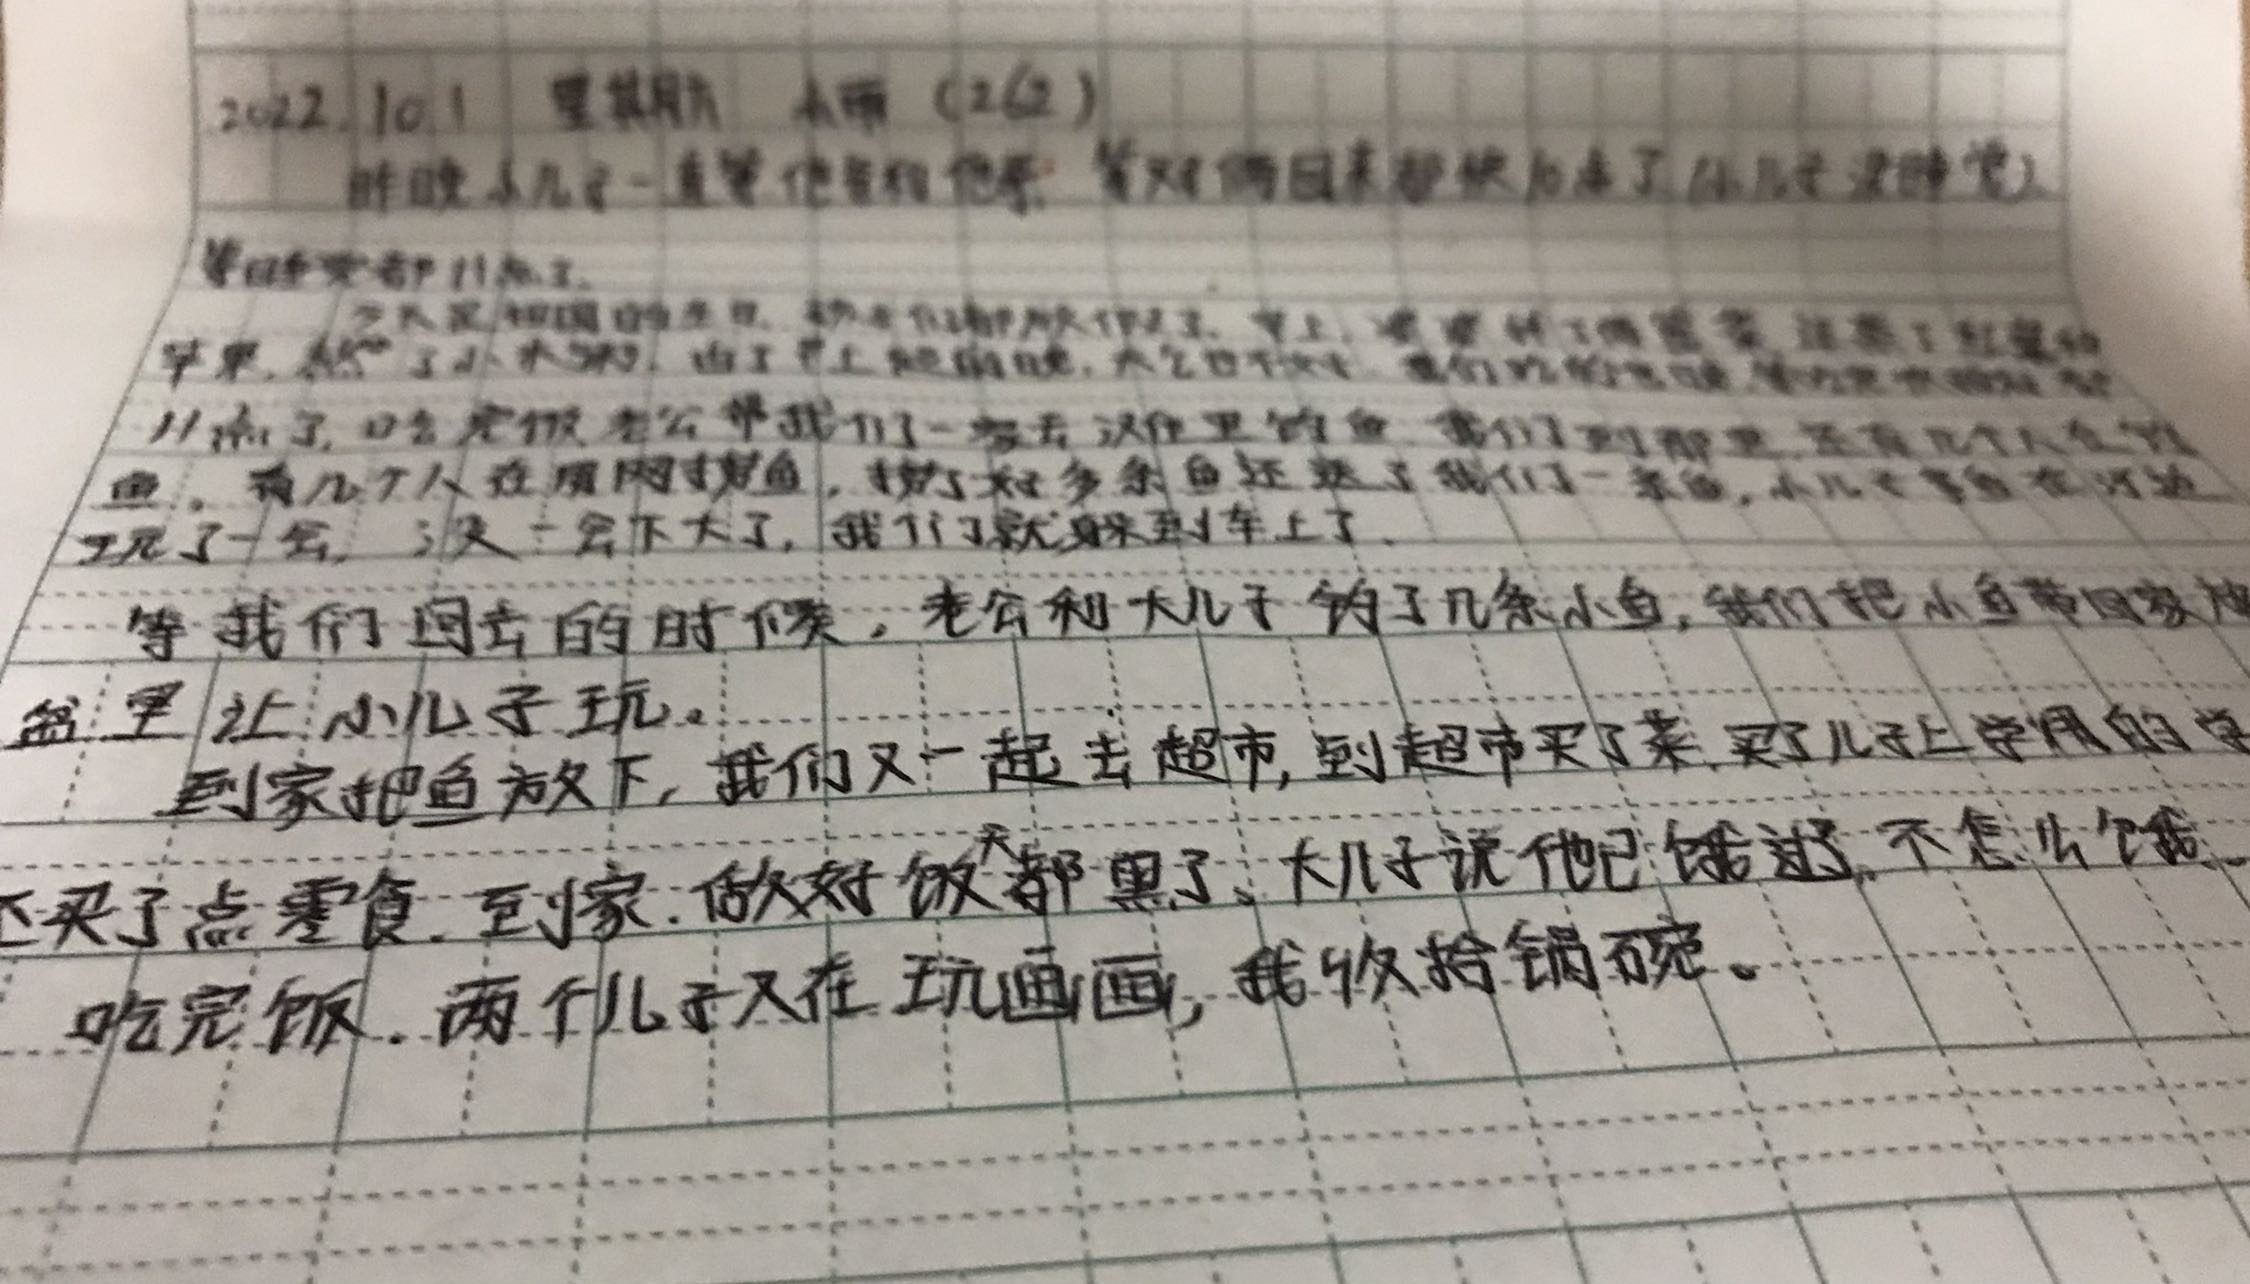 2022.10.1 星期六 小雨 (262)
昨晚小儿子一直等他爸和他哥, 等对俩回来都快10点了(小儿子没睡觉)
等睡觉都11点了.
今天是祖国的生日, 都放假了. 早上, 婆婆
苹果, 了小米粥, 由于早上起的晚, 天气也不好, 我们吃的也晚
11点了, 吃完饭老公带我们一起去汉住里钓鱼 我们到那里 还有几个人在钓
鱼, 有几个人在用网捞鱼, 捞了好多条鱼还送了我们一条鱼, 小儿子拿鱼在河边
玩了一会, 没一会下大了, 我们就躲到车上了.
等我们回去的时候, 老公和大儿子钓了几条小鱼, 我们把小鱼带回家放
盆里让小儿子玩。
到家把鱼放下, 我们又一起去超市, 到超市买了菜, 买了儿子上学用的学
还买了点零食. 到家. 做好饭天都黑了、大儿子说他已饿过了, 不怎么饿.
吃完饭. 两个儿子又在玩画画, 我收拾锅碗。